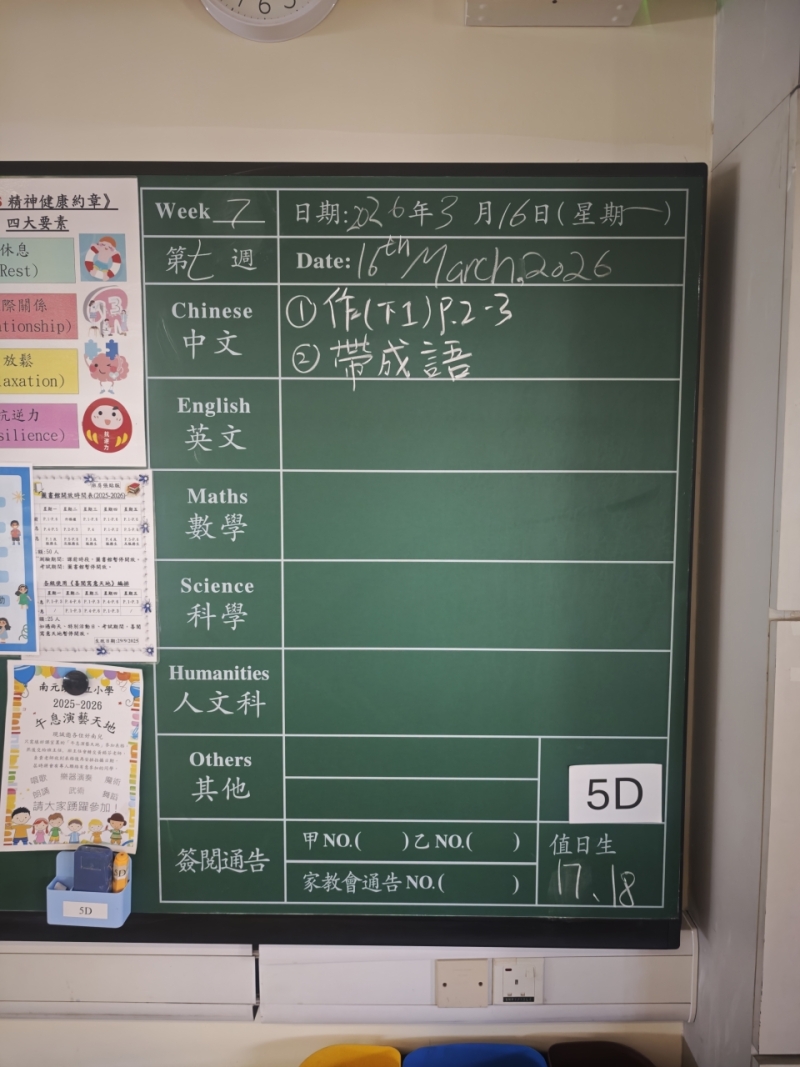 精神健康約章》
四大要素
休息
Rest)
際關係
ationship)
放鬆
laxation)
抗逆力
silience)
Week 7
日期:2026年3月16日(星期一)
第七週
Date: 16th March, 2026
Chinese
中文
①作(下1)P.2-3
②帶成語
English
英文
Maths
數學
Science
科學
Humanities
人文科
Others
其他
5D
簽閱通告
甲NO.( )乙NO.( )
家教會通告NO.( )
值日生
17、18
圖書館開放時間表(2025-2026)
星期一 星期二 星期三 星期四 星期五
2025-2026
午息演藝天地
唱歌 樂器演奏 魔術
朗誦 武術 舞蹈
請大家踴躍參加!
5D